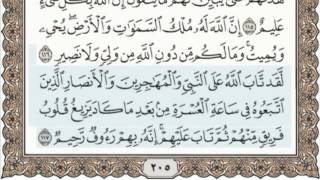 هَدَىٰهُمْ حَتَّىٰ يُبَيِّنَ لَهُم مَّا يَتَّقُونَ إِنَّ ٱللَّهَ بِكُلِّ شَىْءٍ
عَلِيمٌ ١١٥ إِنَّ ٱللَّهَ لَهُۥ مُلْكُ ٱلسَّمَٰوَٰتِ وَٱلْأَرْضِ يُحْىِۦ
وَيُمِيتُ وَمَا لَكُم مِّن دُونِ ٱللَّهِ مِن وَلِىٍّ وَلَا نَصِيرٍ ١١٦
لَّقَد تَّابَ ٱللَّهُ عَلَى ٱلنَّبِىِّ وَٱلْمُهَٰجِرِينَ وَٱلْأَنصَارِ ٱلَّذِينَ
ٱتَّبَعُوهُ فِى سَاعَةِ ٱلْعُسْرَةِ مِنۢ بَعْدِ مَا كَادَ يَزِيغُ قُلُوبُ
فَرِيقٍ مِّنْهُمْ ثُمَّ تَابَ عَلَيْهِمْ إِنَّهُۥ بِهِمْ رَءُوفٌ رَّحِيمٌ ١١٧
٢٠٥